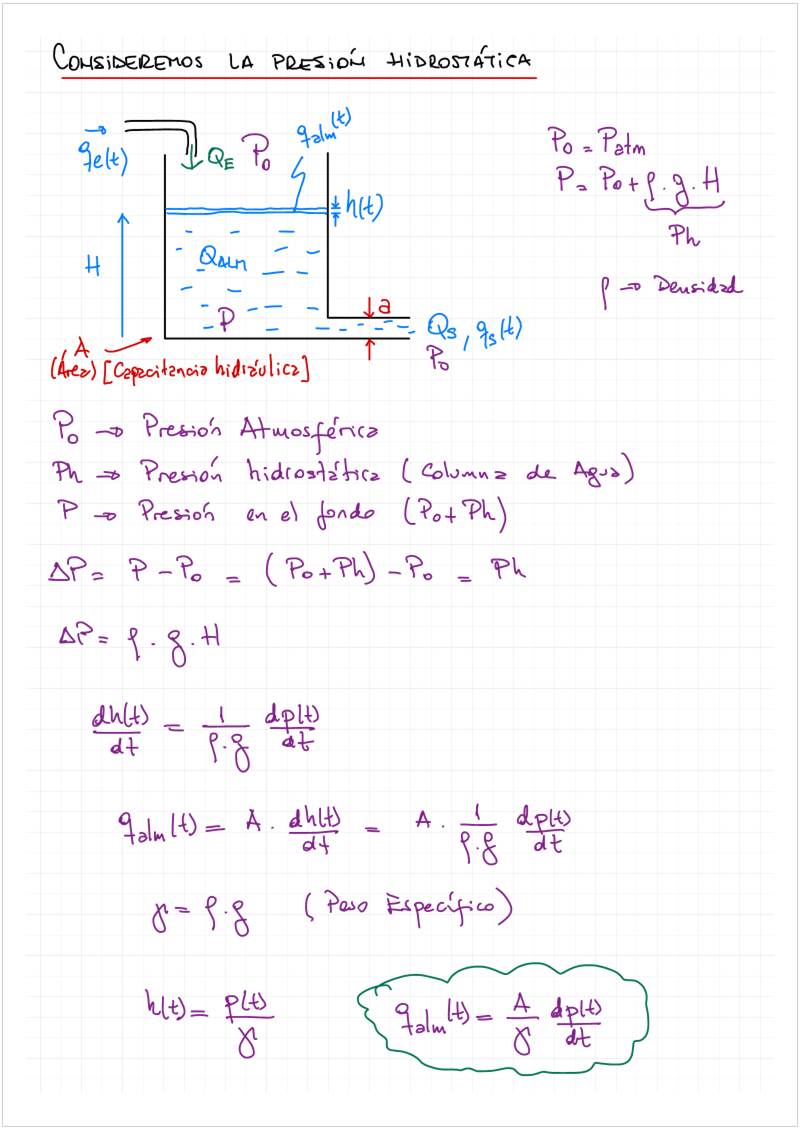 CONSIDEREMOS LA PRESIÓN HIDROSTÁTICA
qe(t)
QE
P₀
qalm(t)
h(t)
H
QALM
P
a
Qs, qs(t)
P₀
A
(Área) [Capacitancia hidráulica]
P₀ = Patm
P = P₀ + ρ.g.H
Ph
ρ → Densidad
P₀ → Presión Atmosférica
Ph → Presión hidrostática (Columna de Agua)
P → Presión en el fondo (P₀+Ph)
ΔP = P − P₀ = (P₀+Ph) − P₀ = Ph
ΔP = ρ . g . H
dh(t)/dt = 1/ρ.g dp(t)/dt
qalm(t) = A . dh(t)/dt = A . 1/ρ.g dp(t)/dt
γ = ρ.g (Peso Específico)
h(t) = p(t)/γ
qalm(t) = A/γ dp(t)/dt